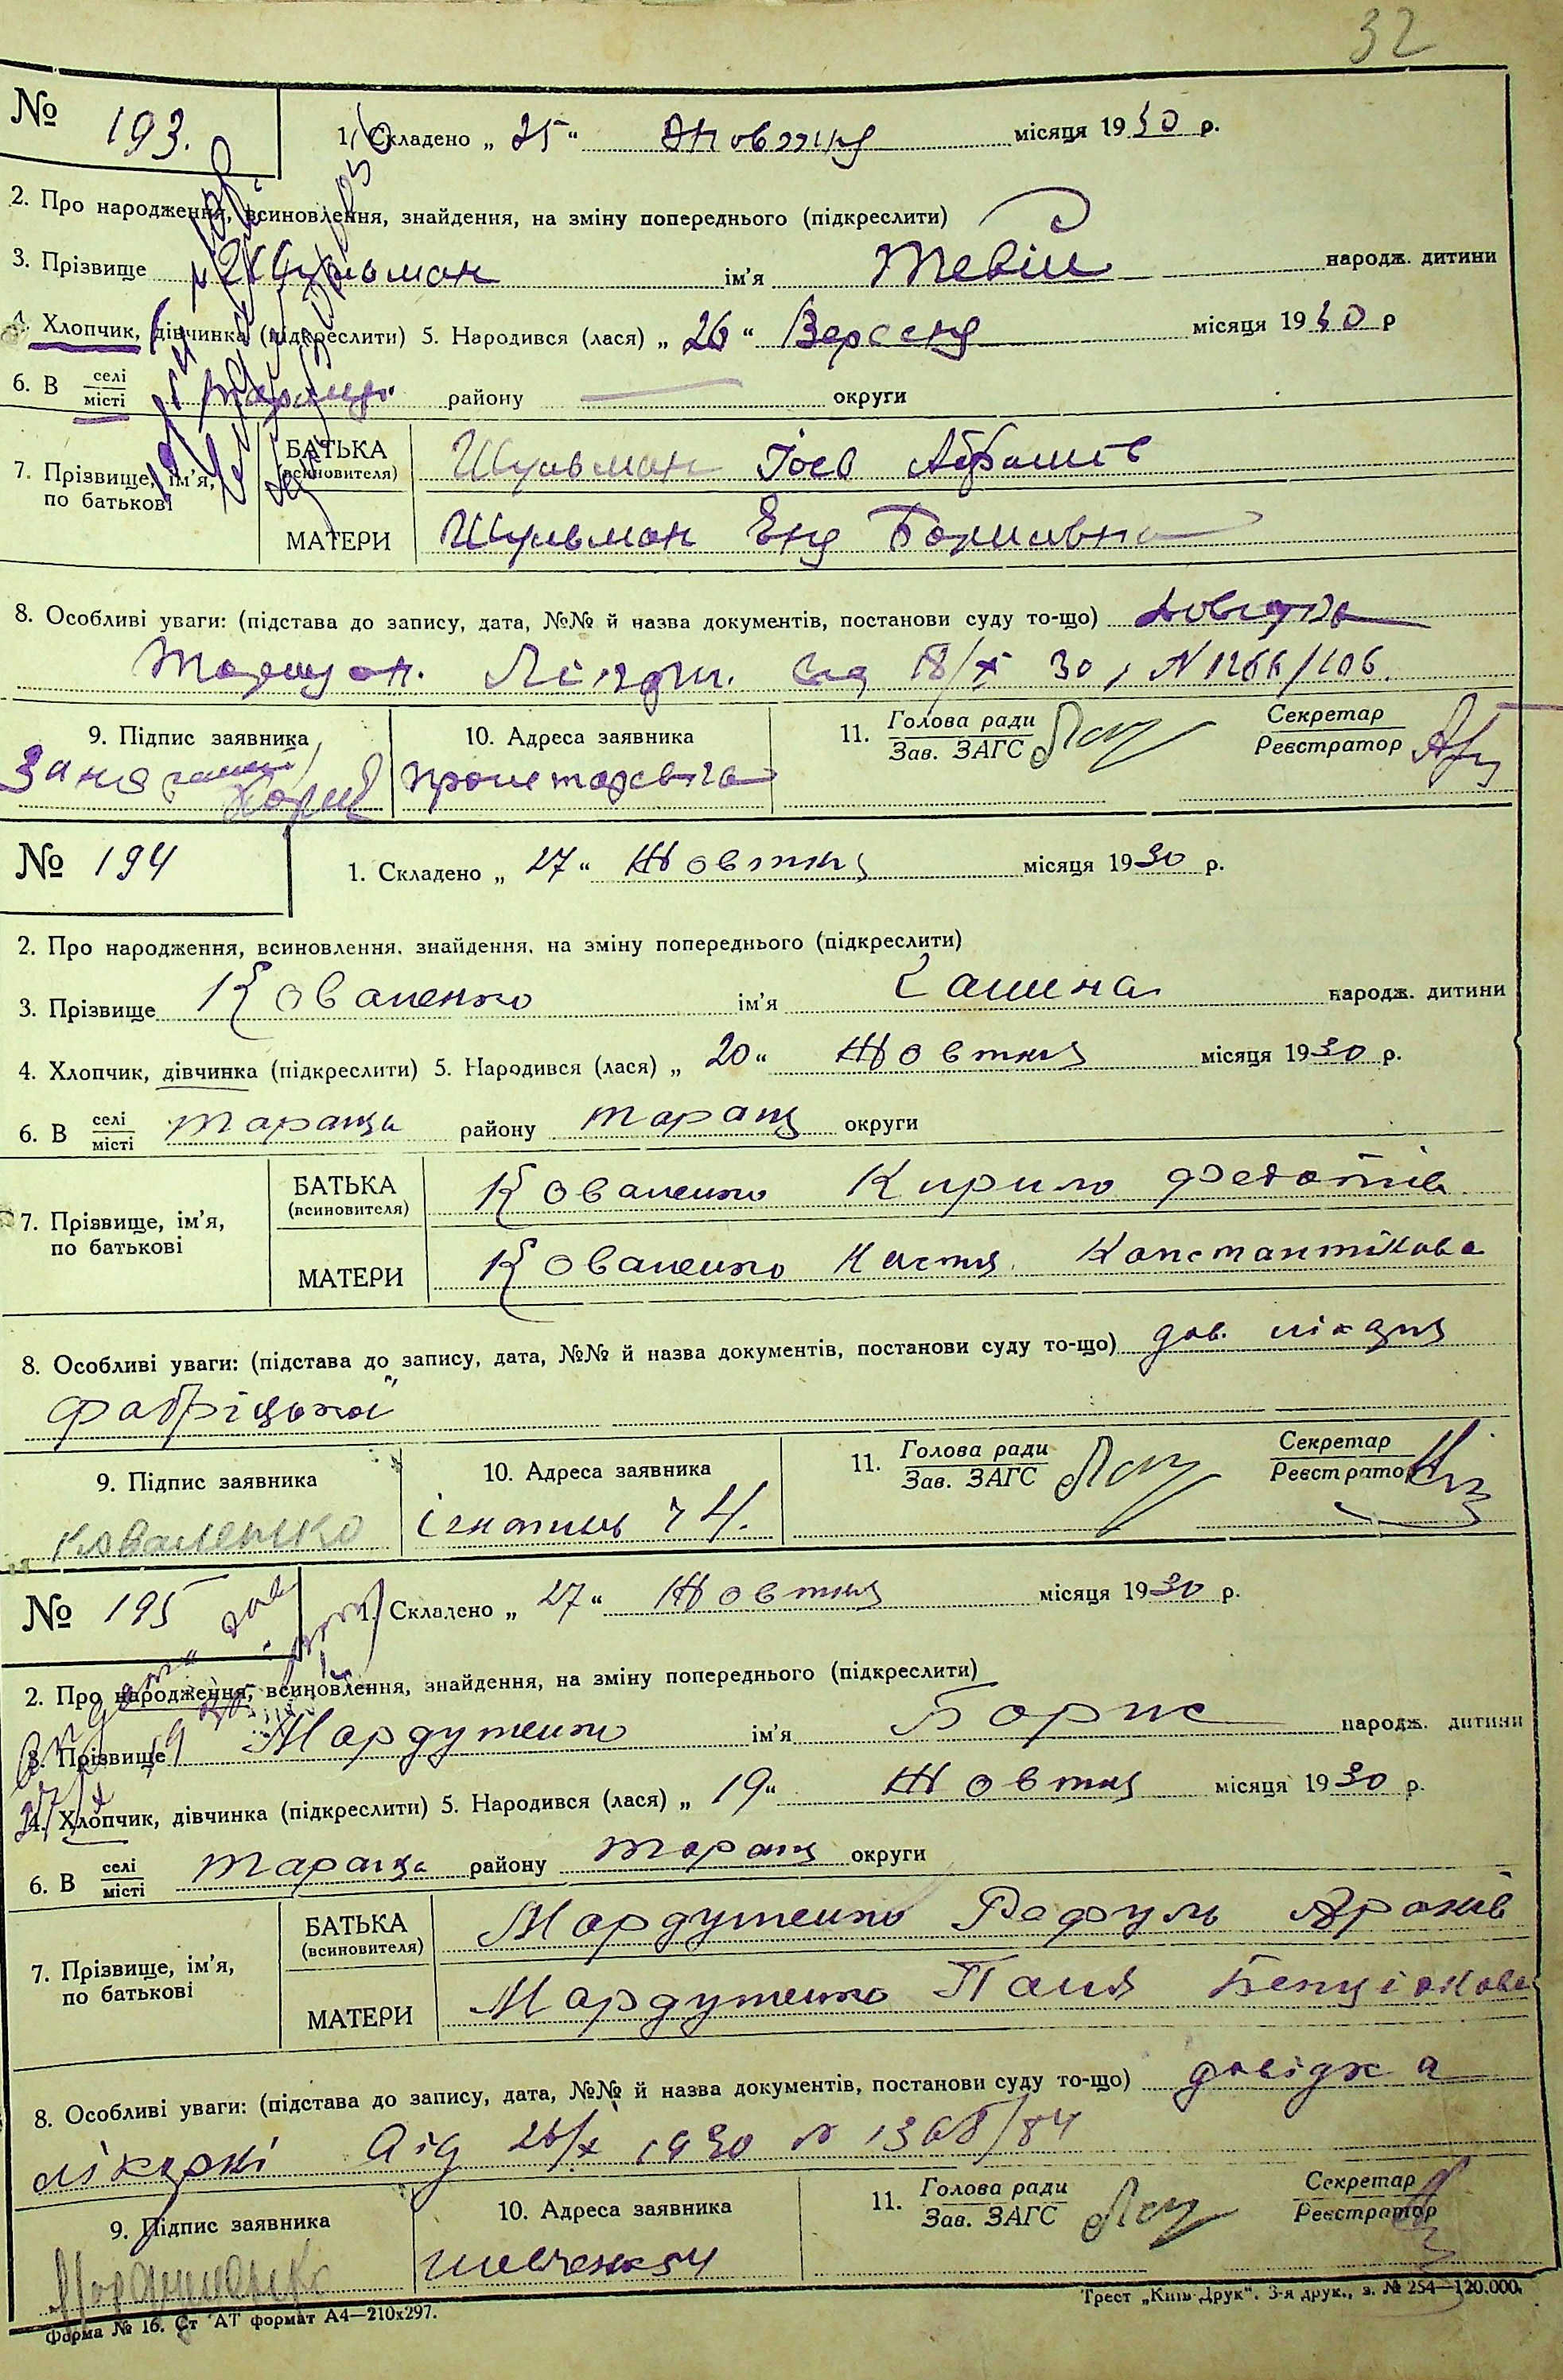 32
№ 193.
1. Складено „ 25 “ Жовтня місяця 1930 р.
2. Про народження, всиновлення, знайдення, на зміну попереднього (підкреслити)
3. Прізвище Шульман ім’я Тевій народж. дитини
4. Хлопчик, дівчинка (підкреслити) 5. Народився (лася) „ 26 “ Вересня місяця 1930 р
6. В селі/місті Тараща району округи
7. Прізвище, ім’я, по батькові
БАТЬКА (всиновителя) Шульман Йосв Абрамів
МАТЕРИ Шульман Єня Борисівна
8. Особливі уваги: (підстава до запису, дата, №№ й назва документів, постанови суду то-що) довідка
Таращан. Лікарн. від 18/X 30, N 1266/106.
9. Підпис заявника
10. Адреса заявника Пролетарська
11. Голова ради/Зав. ЗАГС Секретар/Реєстратор
№ 194
1. Складено „ 27 “ Жовтня місяця 1930 р.
2. Про народження, всиновлення, знайдення, на зміну попереднього (підкреслити)
3. Прізвище Коваленко ім’я Галина народж. дитини
4. Хлопчик, дівчинка (підкреслити) 5. Народився (лася) „ 20 “ Жовтня місяця 1930 р.
6. В селі/місті Тараща району Таращ округи
7. Прізвище, ім’я, по батькові
БАТЬКА (всиновителя) Коваленко Кирило Федотів
МАТЕРИ Коваленко Настя Константінова
8. Особливі уваги: (підстава до запису, дата, №№ й назва документів, постанови суду то-що) дов. лікаря
Фабріцької
9. Підпис заявника Коваленко
10. Адреса заявника
11. Голова ради/Зав. ЗАГС Секретар/Реєстратор
№ 195
1. Складено „ 27 “ Жовтня місяця 1930 р.
2. Про народження, всиновлення, знайдення, на зміну попереднього (підкреслити)
3. Прізвище Мардутенко ім’я Борис народж. дитини
4. Хлопчик, дівчинка (підкреслити) 5. Народився (лася) „ 19 “ Жовтня місяця 1930 р.
6. В селі/місті Тараща району Таращ округи
7. Прізвище, ім’я, по батькові
БАТЬКА (всиновителя) Мардутенко Рафуль Аронів
МАТЕРИ Мардутенко Паля Бенціонова
8. Особливі уваги: (підстава до запису, дата, №№ й назва документів, постанови суду то-що) довідка
лікарні від 26/X 1930 № 1368/84
9. Підпис заявника
10. Адреса заявника Шевченк 54
11. Голова ради/Зав. ЗАГС Секретар/Реєстратор
Форма № 16. Ст АТ формат А4—210x297.
Трест „Київ-Друк“. 3-я друк., з. № 254—120.000.